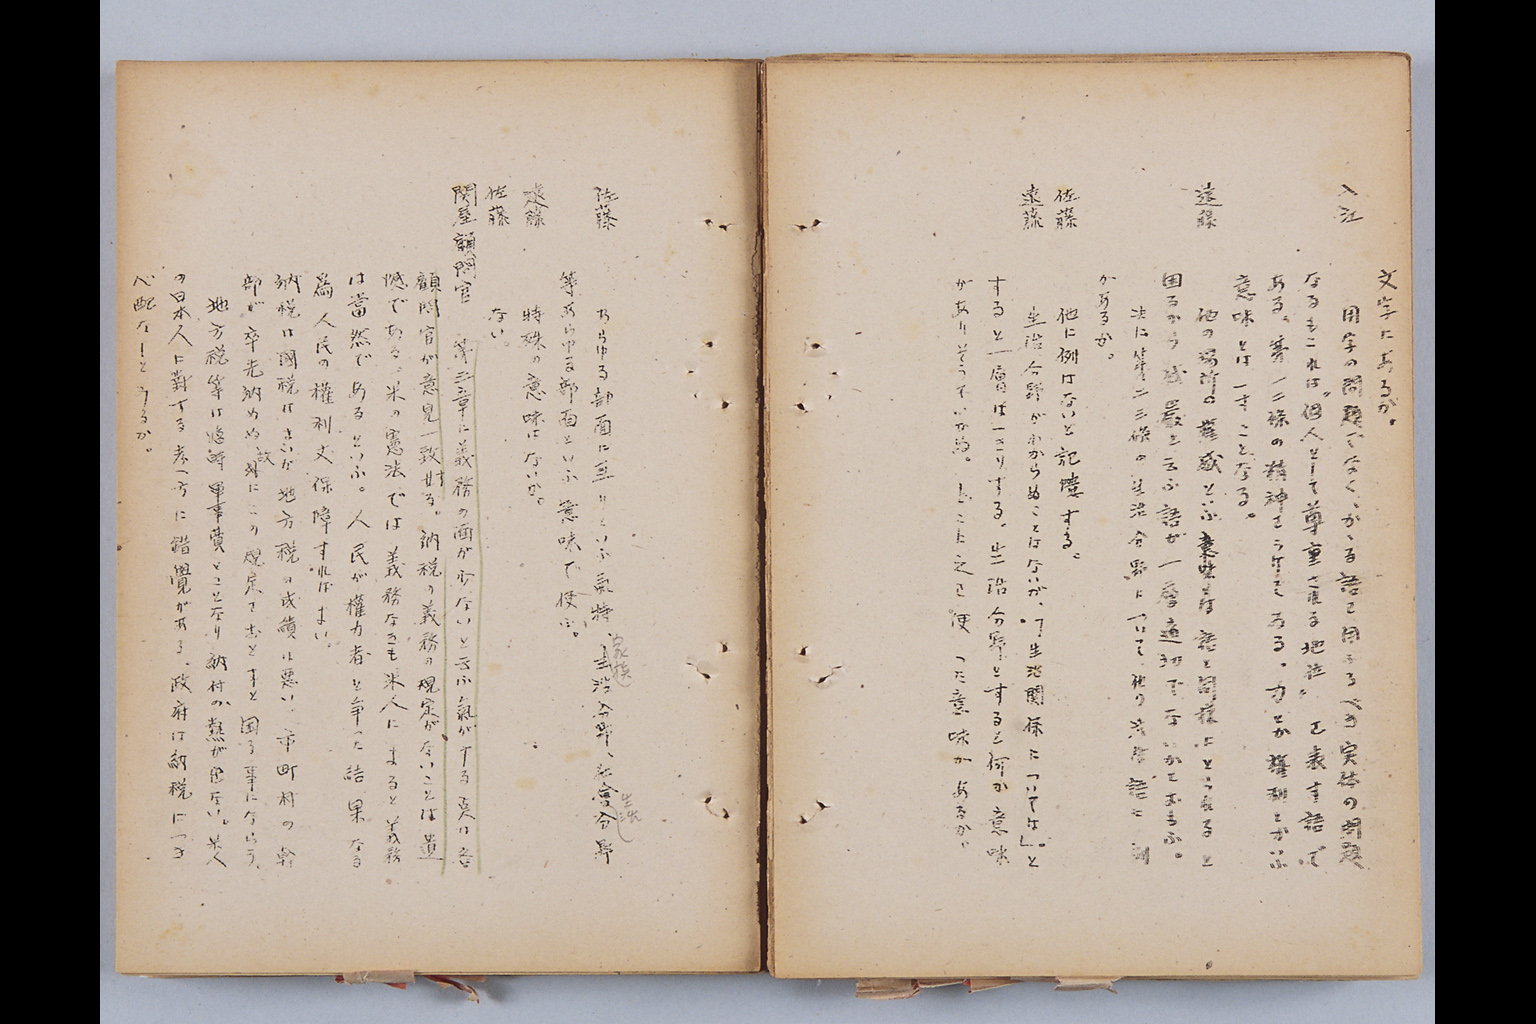 文字にあるか。
入江
用字の問題でなく、かゝる語を用ふるべき実体の問題
なるもこれは"個人として尊重される地位"を表す語で
ある、第一二條の精神をうけてゐる、力とか権利とかいふ
意味とはすことなる。
遠藤
他の場所の権威といふ意味は語と同様にとられると
困るから威嚴と云ふ語が一層適切でないかとおもふ。
次に第二三條の生活分野について、他の法律語に例
があるか。
佐藤
他に例はないと記憶する。
遠藤
生活分野がわからぬことはないが、「生活関係については」。と
すると一層はつきりする、生活分野とすると何か意味
がありそうでいかぬ。
つた意味があるか、
佐藤
あらゆる部面に亘りといふ氣持、生活分野、社會分野
家族
生活
等あらゆる部面といふ意味で使ふ。
遠藤
特殊の意味はないか。
佐藤
ない。
関屋顧問官
第三章に義務の面が少ないと云ふ氣がする点は各
顧問官が意見一致せる。納税の義務の規定がないことは遺
憾である。米の憲法では義務なきも米人によると義務
は當然であるといふ。人民が権力者と争つた結果なる
為人民の權利丈保障すればよい。
納税は國税はよいが地方税の成績は悪い、市町村の幹
部が卒先納めぬ故にこの規定を
地方税等は
の日本人に對する考へ方に錯覺がある。政府は納税につき
心配なしとするか。